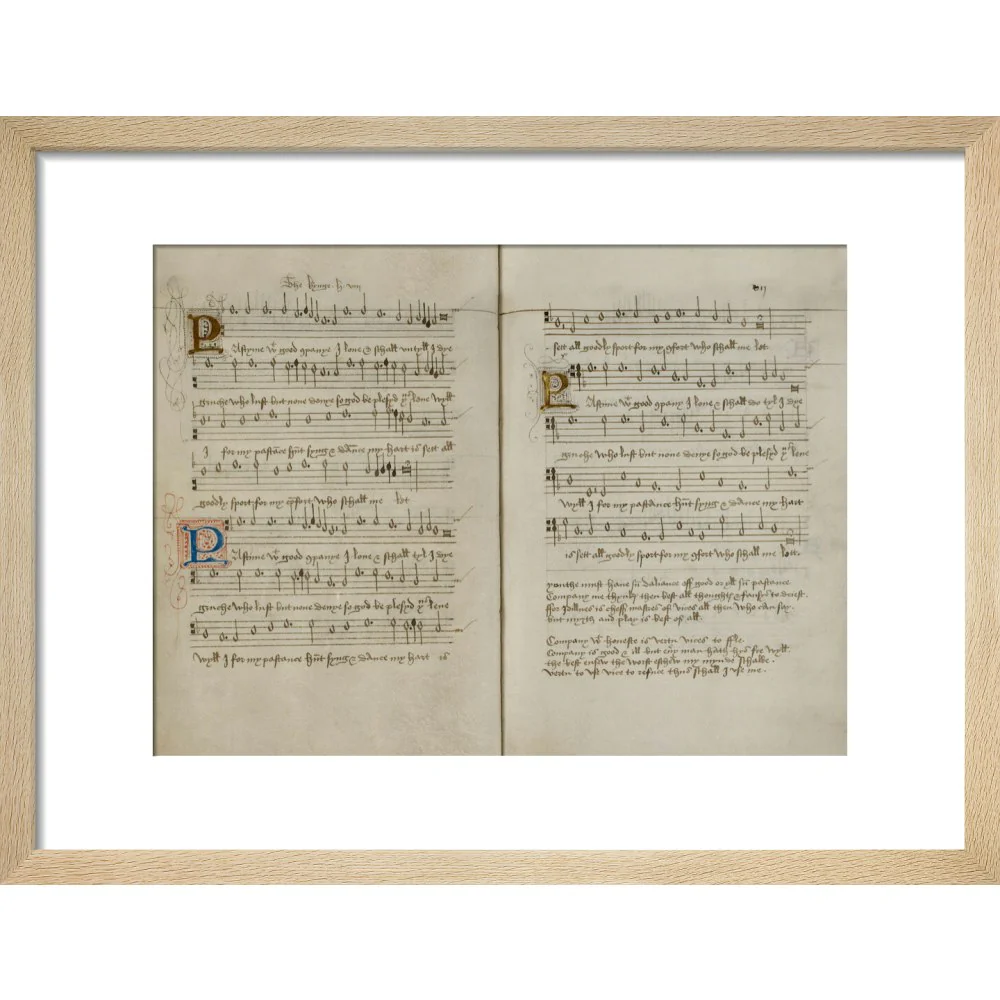 The kynge. h. viij
Pastyme wt good cpanye I love & schall untyll I dye
gruche who lust but none denye so god be plesyd ys leve wyll
I for my pastace hunt syng & dance my hart is sett all
goodly sport for my cfort who schall me let
Pastyme wt good cpanye I love & schall tyl I dye
gruche who lust but none denye so god be plesyd yus leve
wyll I for my pastance hunt syng & dance my hart is
sett all goodly sport for my cfort who schall me let.
Pastyme wt good cpany I love & schall do tyl I dye
gruche who lust but none denye so god be plesyd yus leve
wyll I for my pastance hunt syng & dance my hart
is sett all goodly sport for my cfort who schall me lett.
youthe must have su daliance off good or yll su pastance
Company me thynks then best all thoughts & fansys to dejest.
ffor Idillnes is cheff mastres of vices all then who can say.
but myrth and play is best of all.
Company wt honeste is vertu vices to ffle.
Company is good & ill but evy man hath hys fre wyll.
the best ensew the worst eschew my mynde schalbe.
vertu to use vice to refuce thus schall I use me.